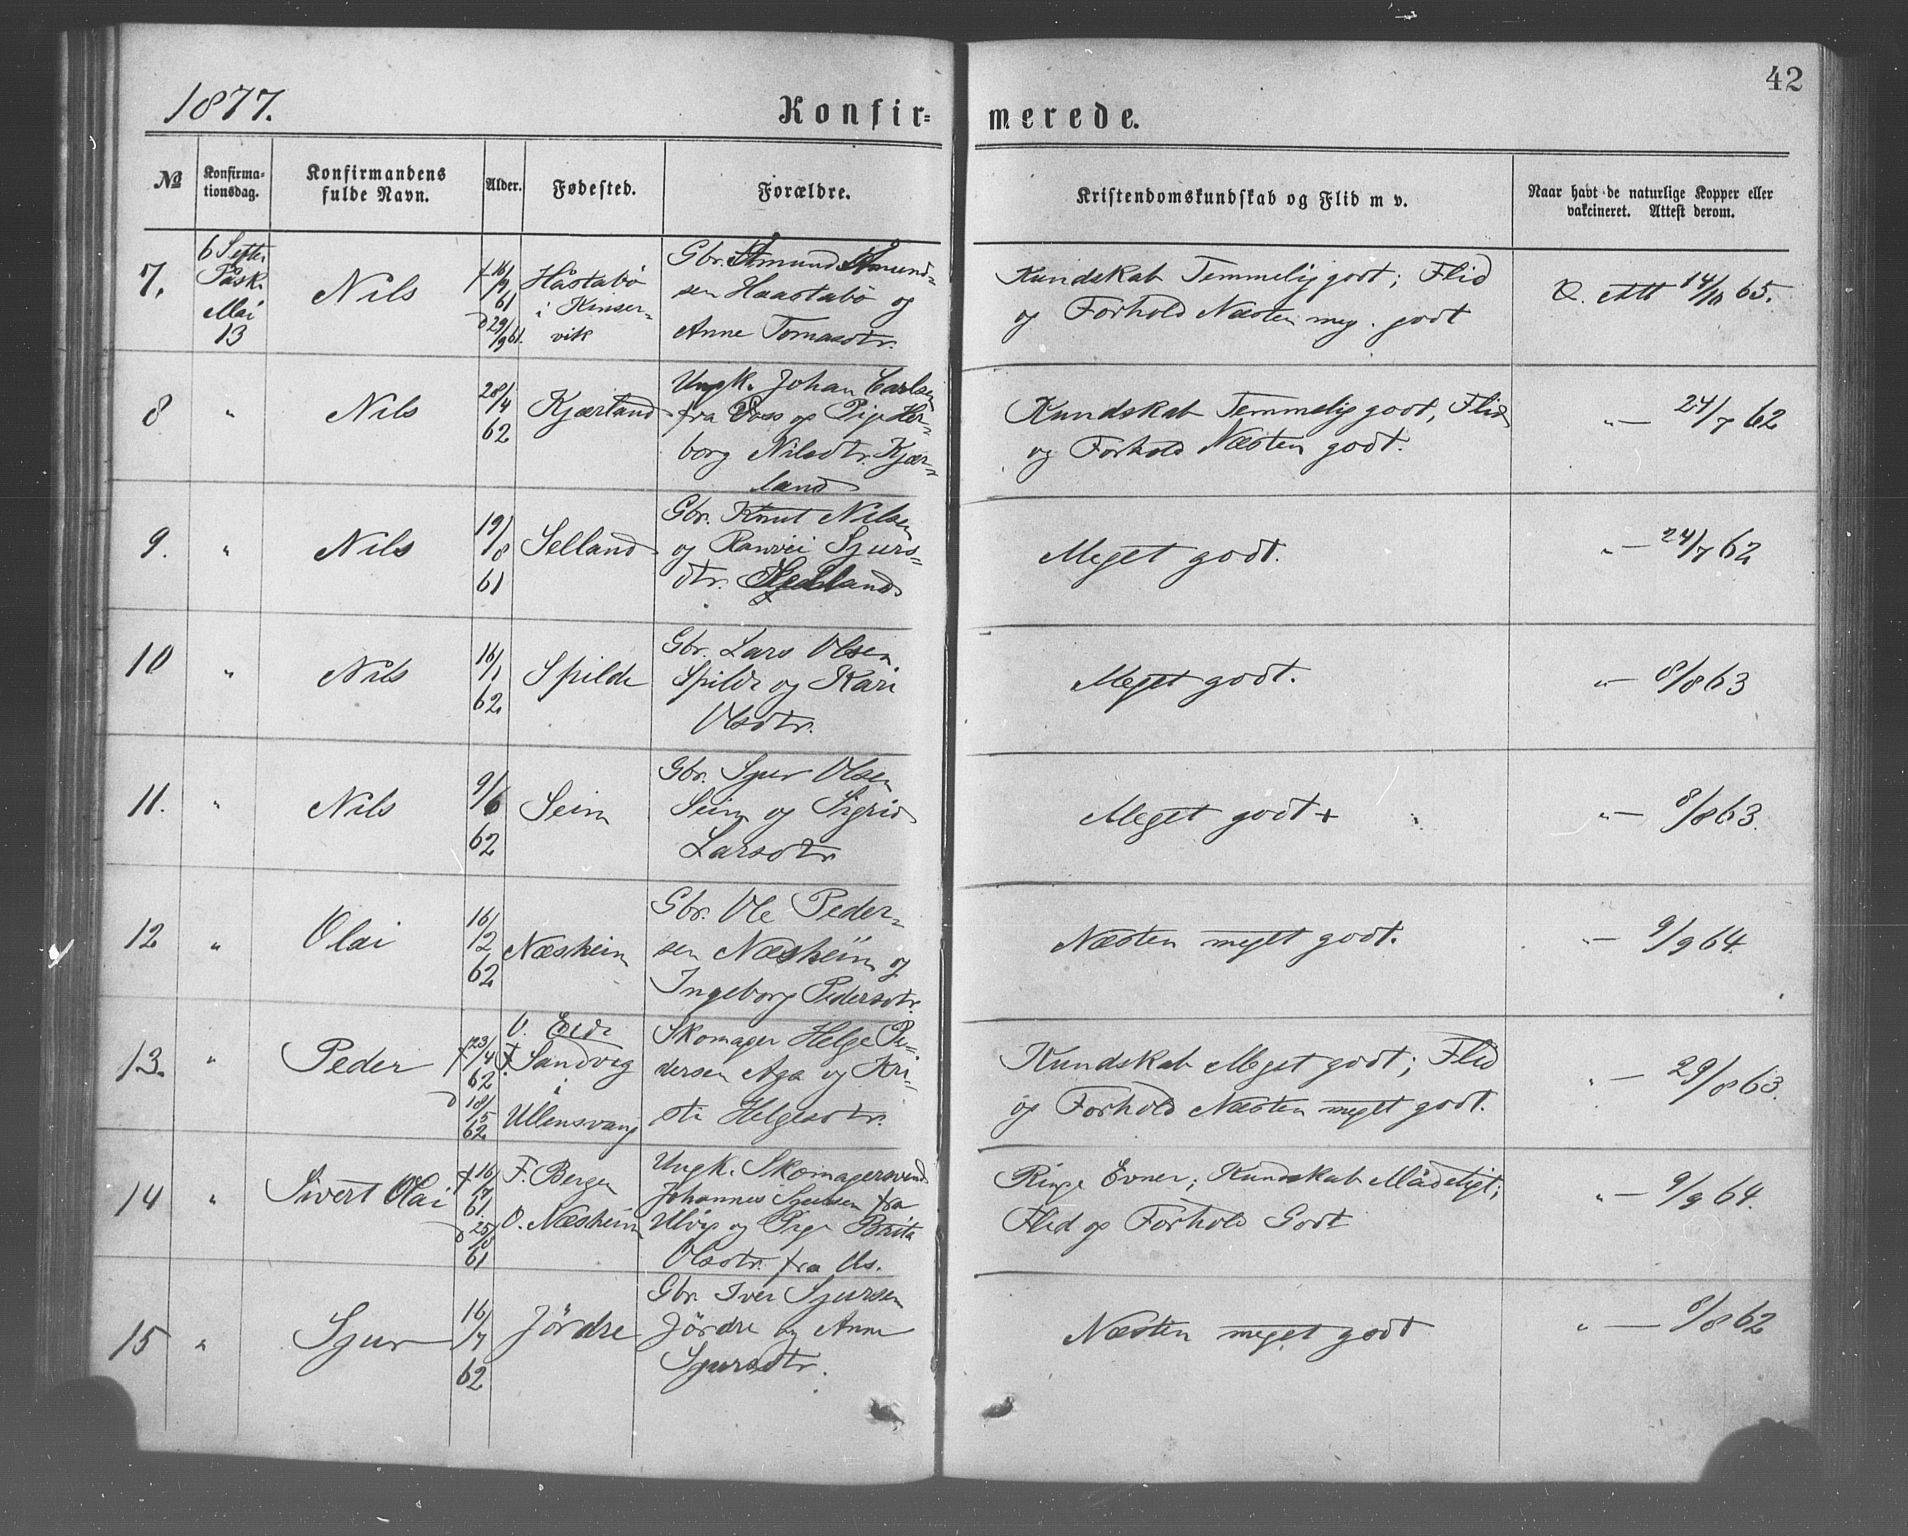 1877.
Konfir=
merede.
42
№
Konfirma-
tionsdag.
Konfirmandens
fulde Navn.
Alder.
Fødested.
Forældre.
Kristendomskundskab og Flid m v.
Naar havt de naturlige Kopper eller
vakcineret. Attest derom.
7.
6 S. efter
Påsk.
Mai
13
Nils
f 16/9
61
d 29/9 61.
Håstabö
i Kinser-
vik
Gbr. Åmund Åmund-
sen Haastabö og
Anne Tomasdtr.
Kundskab Temmelig godt; Flid
og Forhold Næsten meg. godt
V. Att 14/10 65.
8
"
Nils
28/4
62
Kjærland
Ungk. Johan Carlsen
fra Voss og Pige Her-
borg Nilsdtr. Kjær-
land
Kundskab Temmelig godt, Flid
og Forhold Næsten godt.
"— 24/7 62
9.
"
Nils
19/8
61
Selland
Gbr. Knut Nilsen
og Ranvei Sjurs-
dtr. Selland
Meget godt.
"— 24/7 62
10
"
Nils
16/1
62
Spilde
Gbr. Lars Olsen
Spilde og Kari
Olsdtr.
Meget godt.
"— 8/8 63
11.
"
Nils
9/6
62
Seim
Gbr. Sjur Olsen
Seim og Sigrid
Larsdtr
Meget godt +
"— 8/8 63.
12
"
Olai
16/12
62
Næsheim
Gbr. Ole Peder-
sen Næsheim og
Ingeborg Pedersdtr.
Næsten meget godt.
"— 9/9 64.
13.
"
Peder
f 23/4
62
d 18/5
62
O. Eide
F. Sandvig
i
Ullensvang
Skomager Helge Pe-
dersen Aga og Kri-
sti Helgesdtr.
Kundskab Meget godt; Flid
og Forhold Næsten meget godt.
"— 29/8 63.
14
"
Sivert Olai
f 16/
61
d 25/
61
F. Bergen
O. Næsheim
Ungk. Skomagersvend
Johannes Sjursen fra
Ulvig og Pige Brita
Olsdtr. fra Us.
Ringe Evner; Kundskab Mådeligt;
Flid og Forhold Godt
"— 9/9 64.
15
"
Sjur
16/7
62
Jördre
Gbr. Iver Sjursen
Jördre og Anne
Sjursdtr.
Næsten meget godt
"— 8/8 62